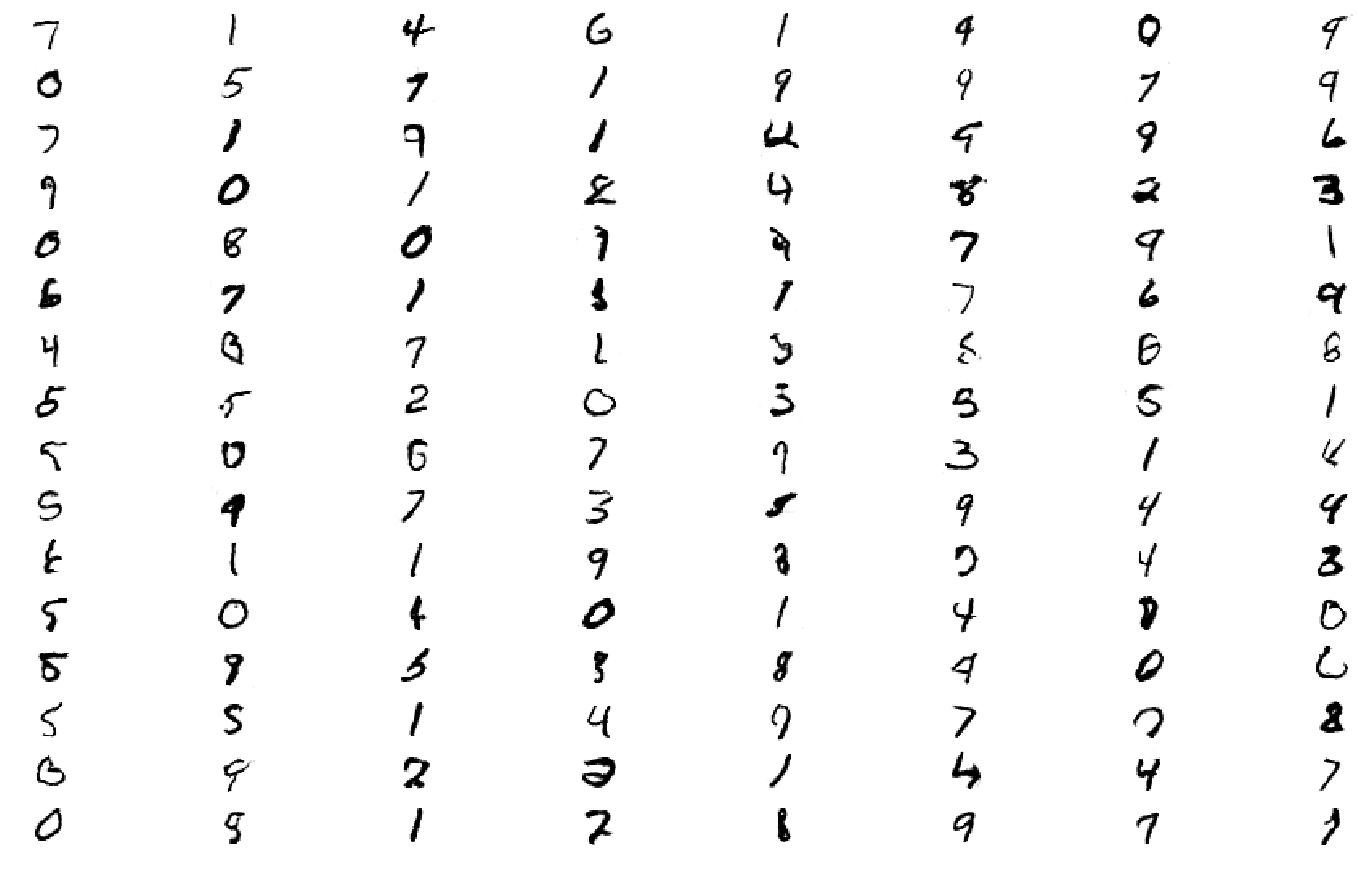 7 1 4 6 1 9 0 9
0 5 7 1 9 9 7 9
7 1 9 1 4 9 9 6
9 0 1 8 4 8 2 3
0 8 0 7 9 7 9 1
6 7 1 3 1 7 6 9
4 8 7 1 3 5 6 6
5 5 2 0 3 5 5 1
5 0 6 7 7 3 1
5 9 7 3 5 9 4 4
1 1 9 3 7 4 3
5 0 4 0 1 4 0
5 9 5 3 8 9 0
5 5 1 4 7 7 7 8
9 2 2 1 4 4 7
0 9 1 2 8 9 7 7